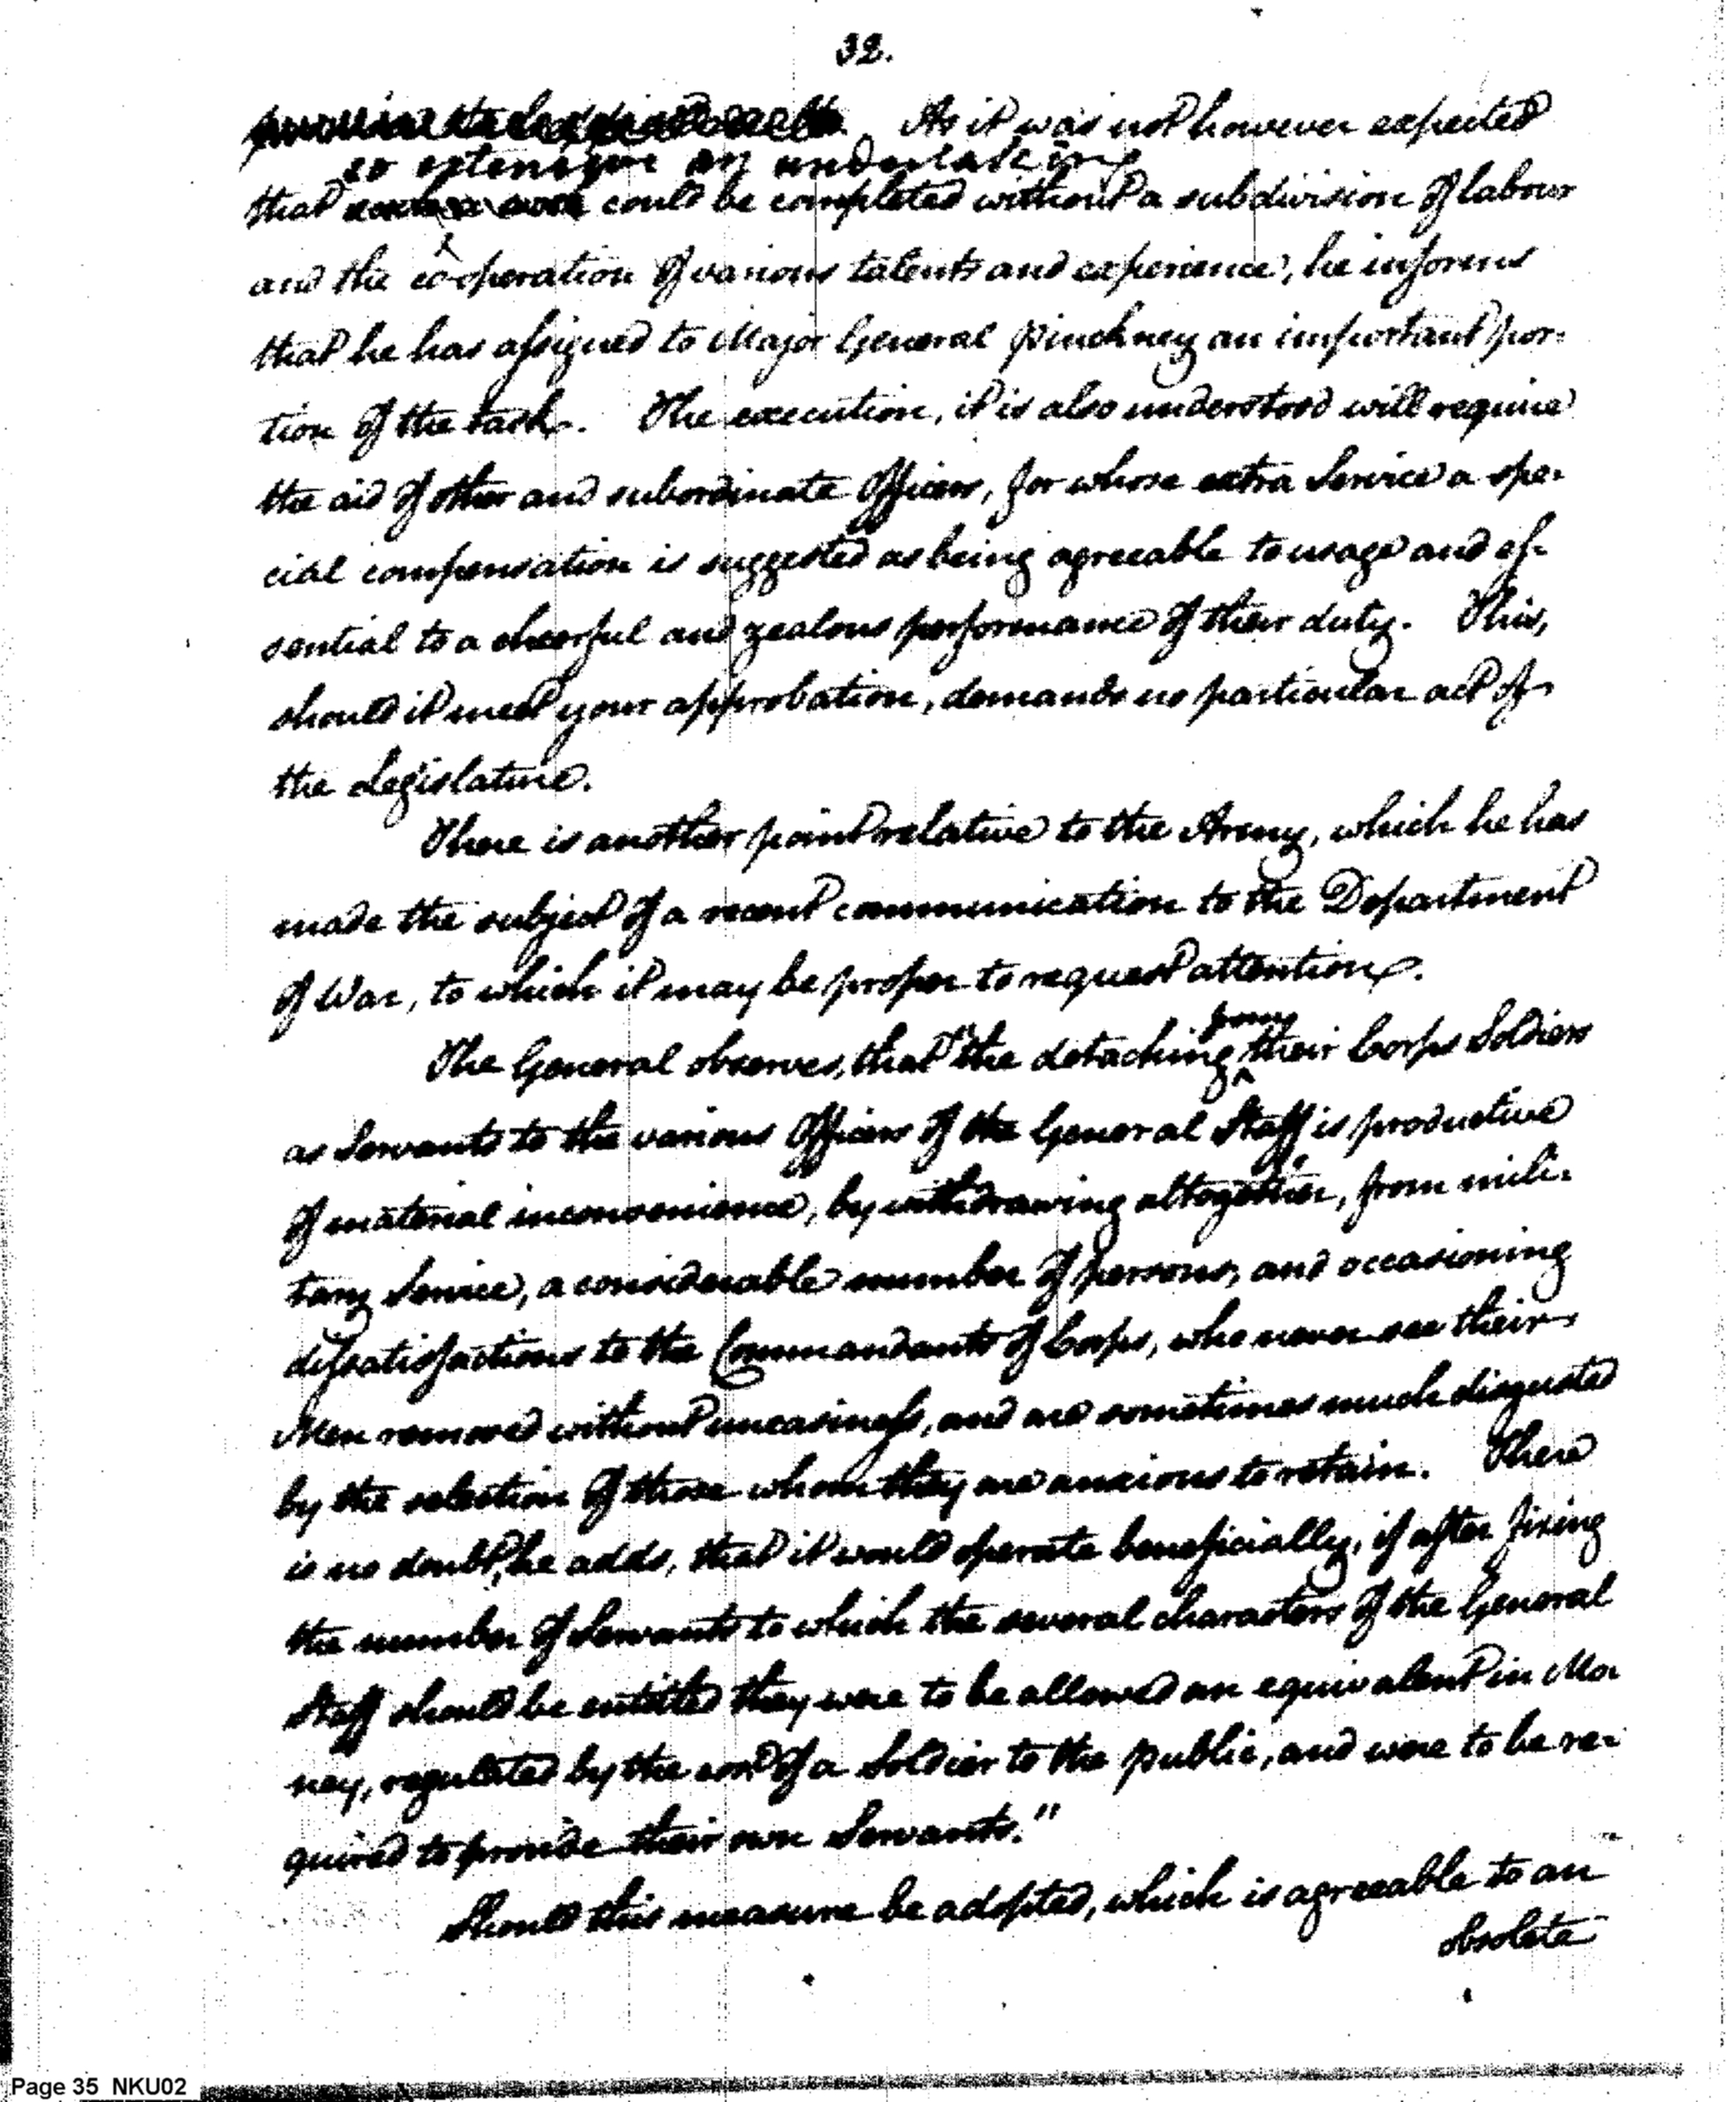 32.
As it was not however expected
so extensive an undertaking
that could be completed without a subdivision of labour
and the co-operation of various talents and experience, he informs
that he has assigned to Major General Pinckney an important por-
tion of the task. The execution, it is also understood will require
the aid of other and subordinate Officers, for whose extra Service a spe-
cial compensation is suggested as being agreeable to usage and es-
sential to a cheerful and zealous performance of their duty. This,
should it meet your approbation, demands no particular act of
the Legislature.
There is another point relative to the Army, which he has
made the subject of a recent communication to the Department
of War, to which it may be proper to request attention.
from
The General observes, that "the detaching ^ their Corps Soldiers
as Servants to the various Officers of the General Staff is productive
of material inconvenience, by withdrawing altogether, from mili-
tary Service, a considerable number of persons, and occasioning
dissatisfactions to the Commandants of Corps, who never see their
Men removed without uneasiness, and are sometimes much disgusted
by the selection of those whom they are anxious to retain. There
is no doubt, he adds, that it would operate beneficially, if after fixing
the number of Servants to which the several characters of the General
Staff should be entitled they were to be allowed an equivalent in Mo-
ney, regulated by the cost of a Soldier to the public, and were to be re-
quired to provide their own Servants."
Should this measure be adopted, which is agreeable to an
obsolete
Page 35 NKU02